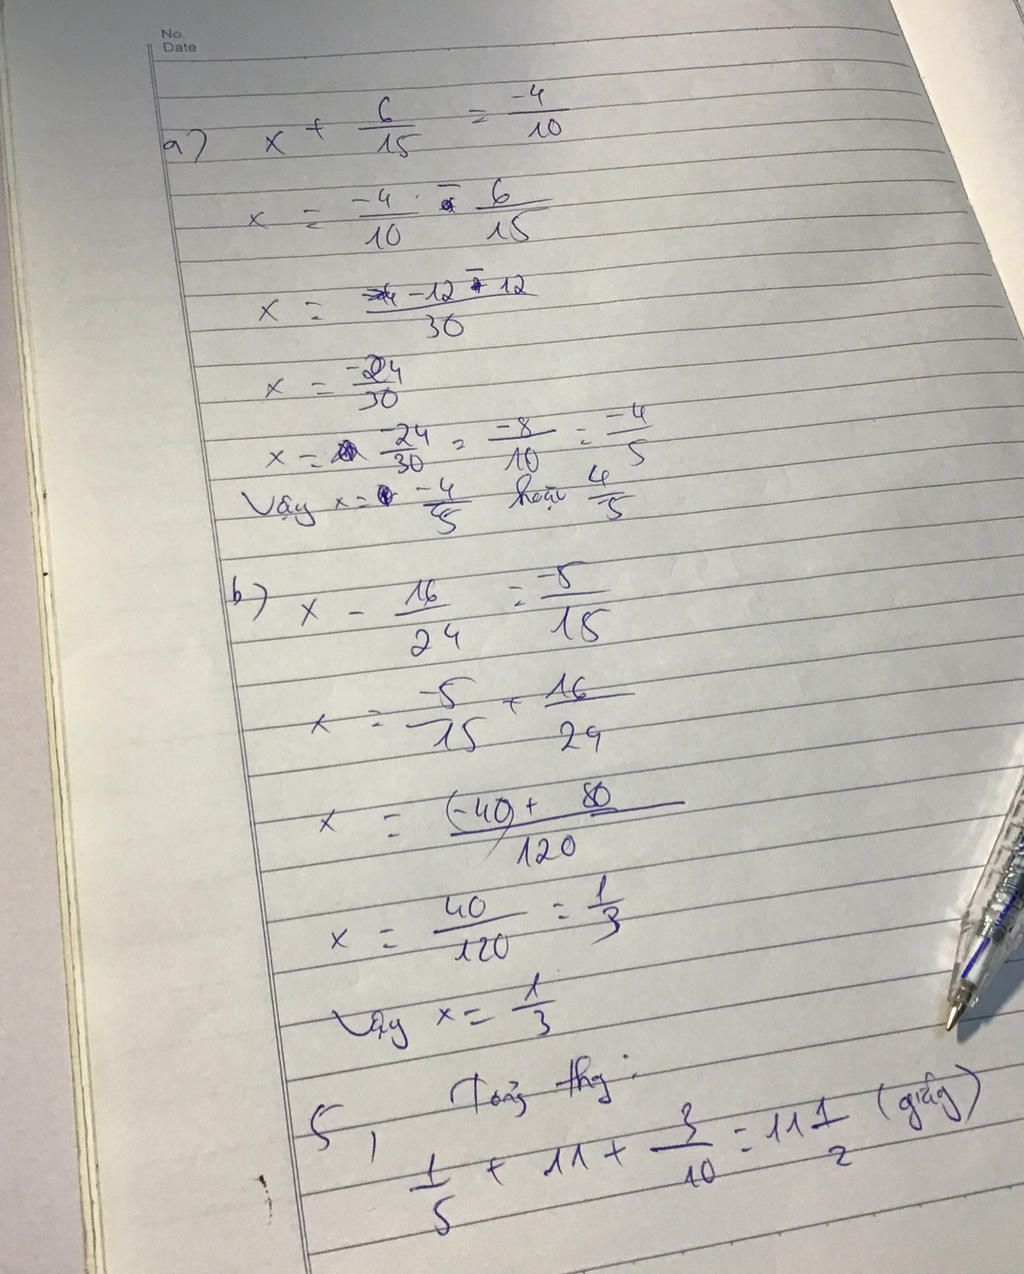 No.
Date
a) x + 6/15 = -4/10
x = -4/10 - 6/15
x = -12 - 12/30
x = -24/30
x = -24/30 = -8/10 = -4/5
Vậy x = -4/5 hoặc 4/5
b) x - 16/24 = -5/15
x = -5/15 + 16/24
x = (-40) + 80/120
x = 40/120 = 1/3
Vậy x = 1/3
5, Tổng :
1/5 + 11 + 3/10 = 11 1/2 (giây)